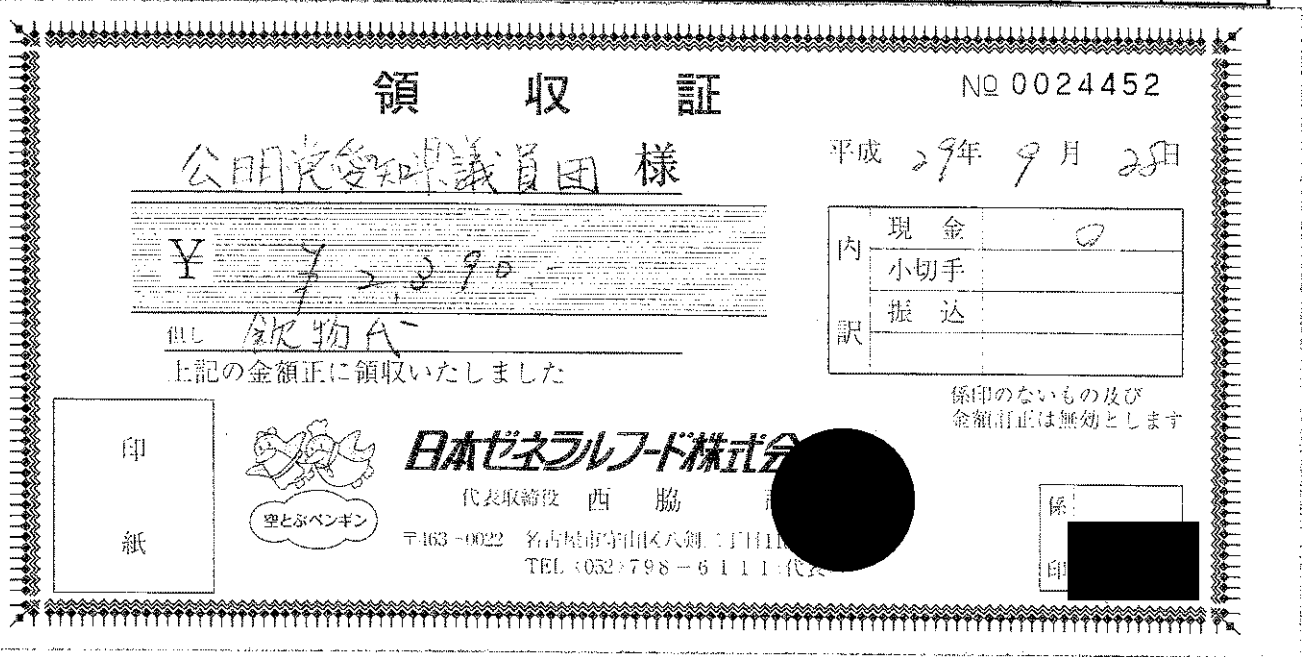 領収証
№ 0024452
公明党愛知県議員団 様
平成 29年 9月 28日
¥ ¥2,390-
但し 飲物代
上記の金額正に領収いたしました
内訳
現金 0
小切手
振込
係印のないもの及び
金額訂正は無効とします
印紙
空とぶペンギン
日本ゼネラルフード株式会
代表取締役 西脇
〒463-0022 名古屋市守山区八剣二丁目
TEL〈052〉798-6111(代表
係印